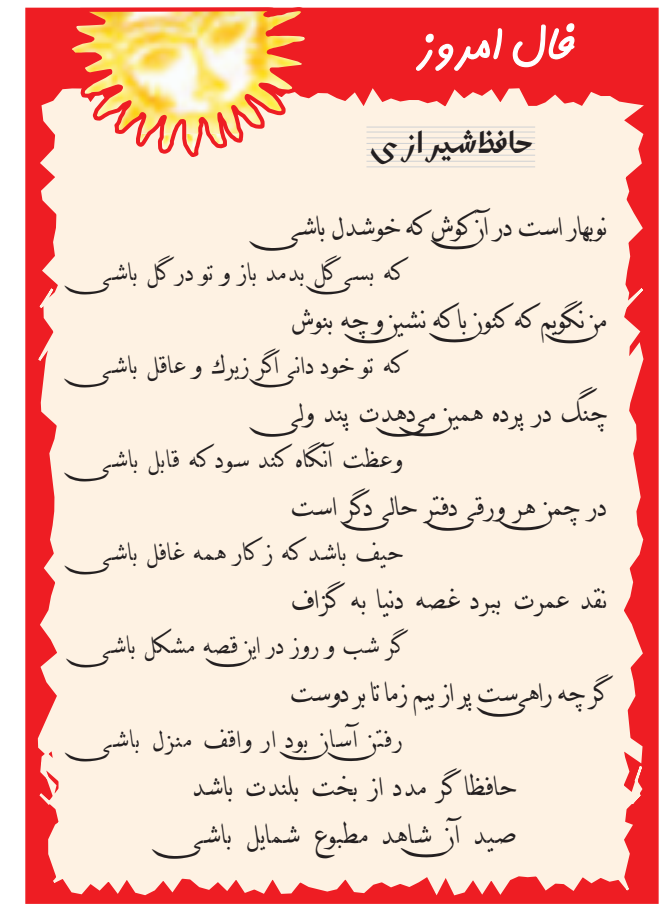 فال امروز
حافظ شیرازی
نوبهار است در آن کوش که خوشدل باشی
که بسی گل بدمد باز و تو در گل باشی
من نگویم که کنون با که نشین و چه بنوش
که تو خود دانی اگر زیرك و عاقل باشی
چنگ در پرده همین می‌دهدت پند ولی
وعظت آنگاه کند سود که قابل باشی
در چمن هر ورقی دفتر حالی دگر است
حیف باشد که ز کار همه غافل باشی
نقد عمرت ببرد غصه دنیا به گزاف
گر شب و روز در این قصه مشکل باشی
گرچه راهی‌ست پر از بیم ز ما تا بر دوست
رفتن آسان بود ار واقف منزل باشی
حافظا گر مدد از بخت بلندت باشد
صید آن شاهد مطبوع شمایل باشی